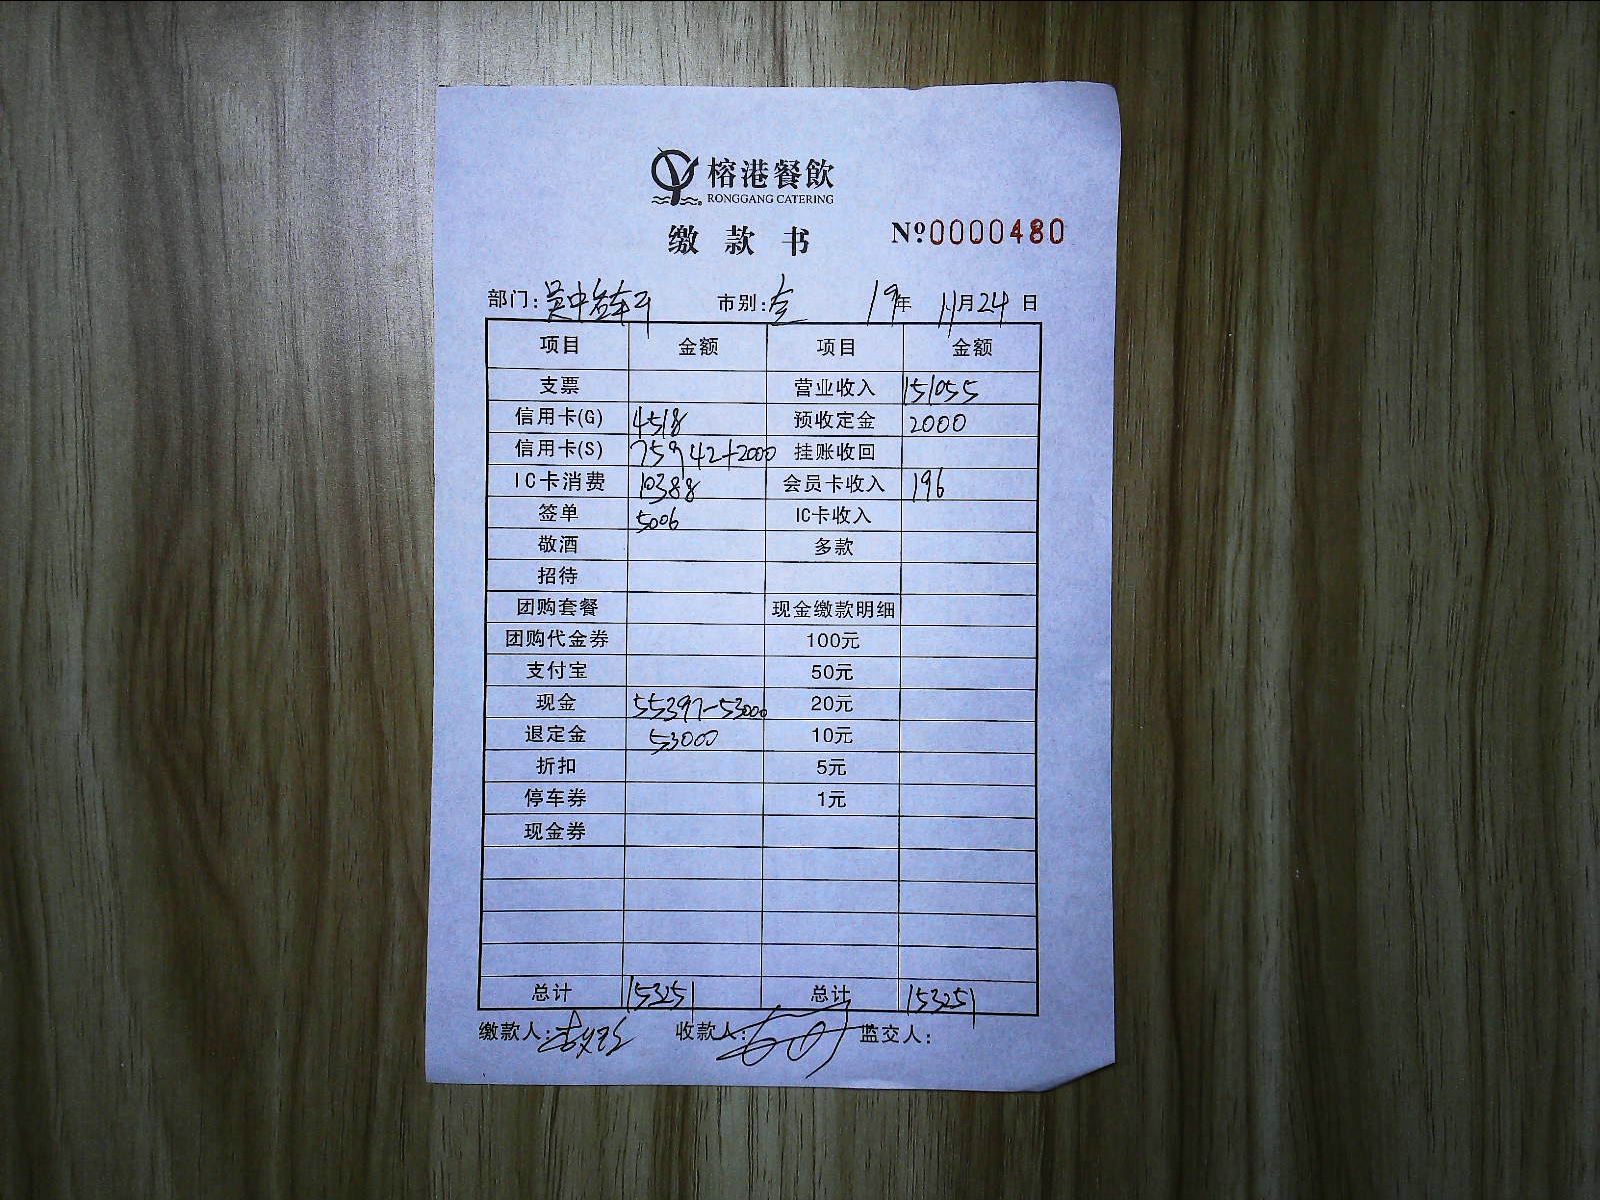 榕港餐飲
RONGGANG CATERING
缴款书 Nº0000480
部门:吴中 市别:全 19年 11月24日
项目 金额 项目 金额
支票 营业收入 151055
信用卡(G) 4518 预收定金 2000
信用卡(S) 75942+2000 挂账收回
IC卡消费 10388 会员卡收入 196
签单 5006 IC卡收入
敬酒 多款
招待
团购套餐 现金缴款明细
团购代金券 100元
支付宝 50元
现金 55397-53000 20元
退定金 53000 10元
折扣 5元
停车券 1元
现金券
总计 153251 总计 153251
缴款人: 收款人: 监交人: